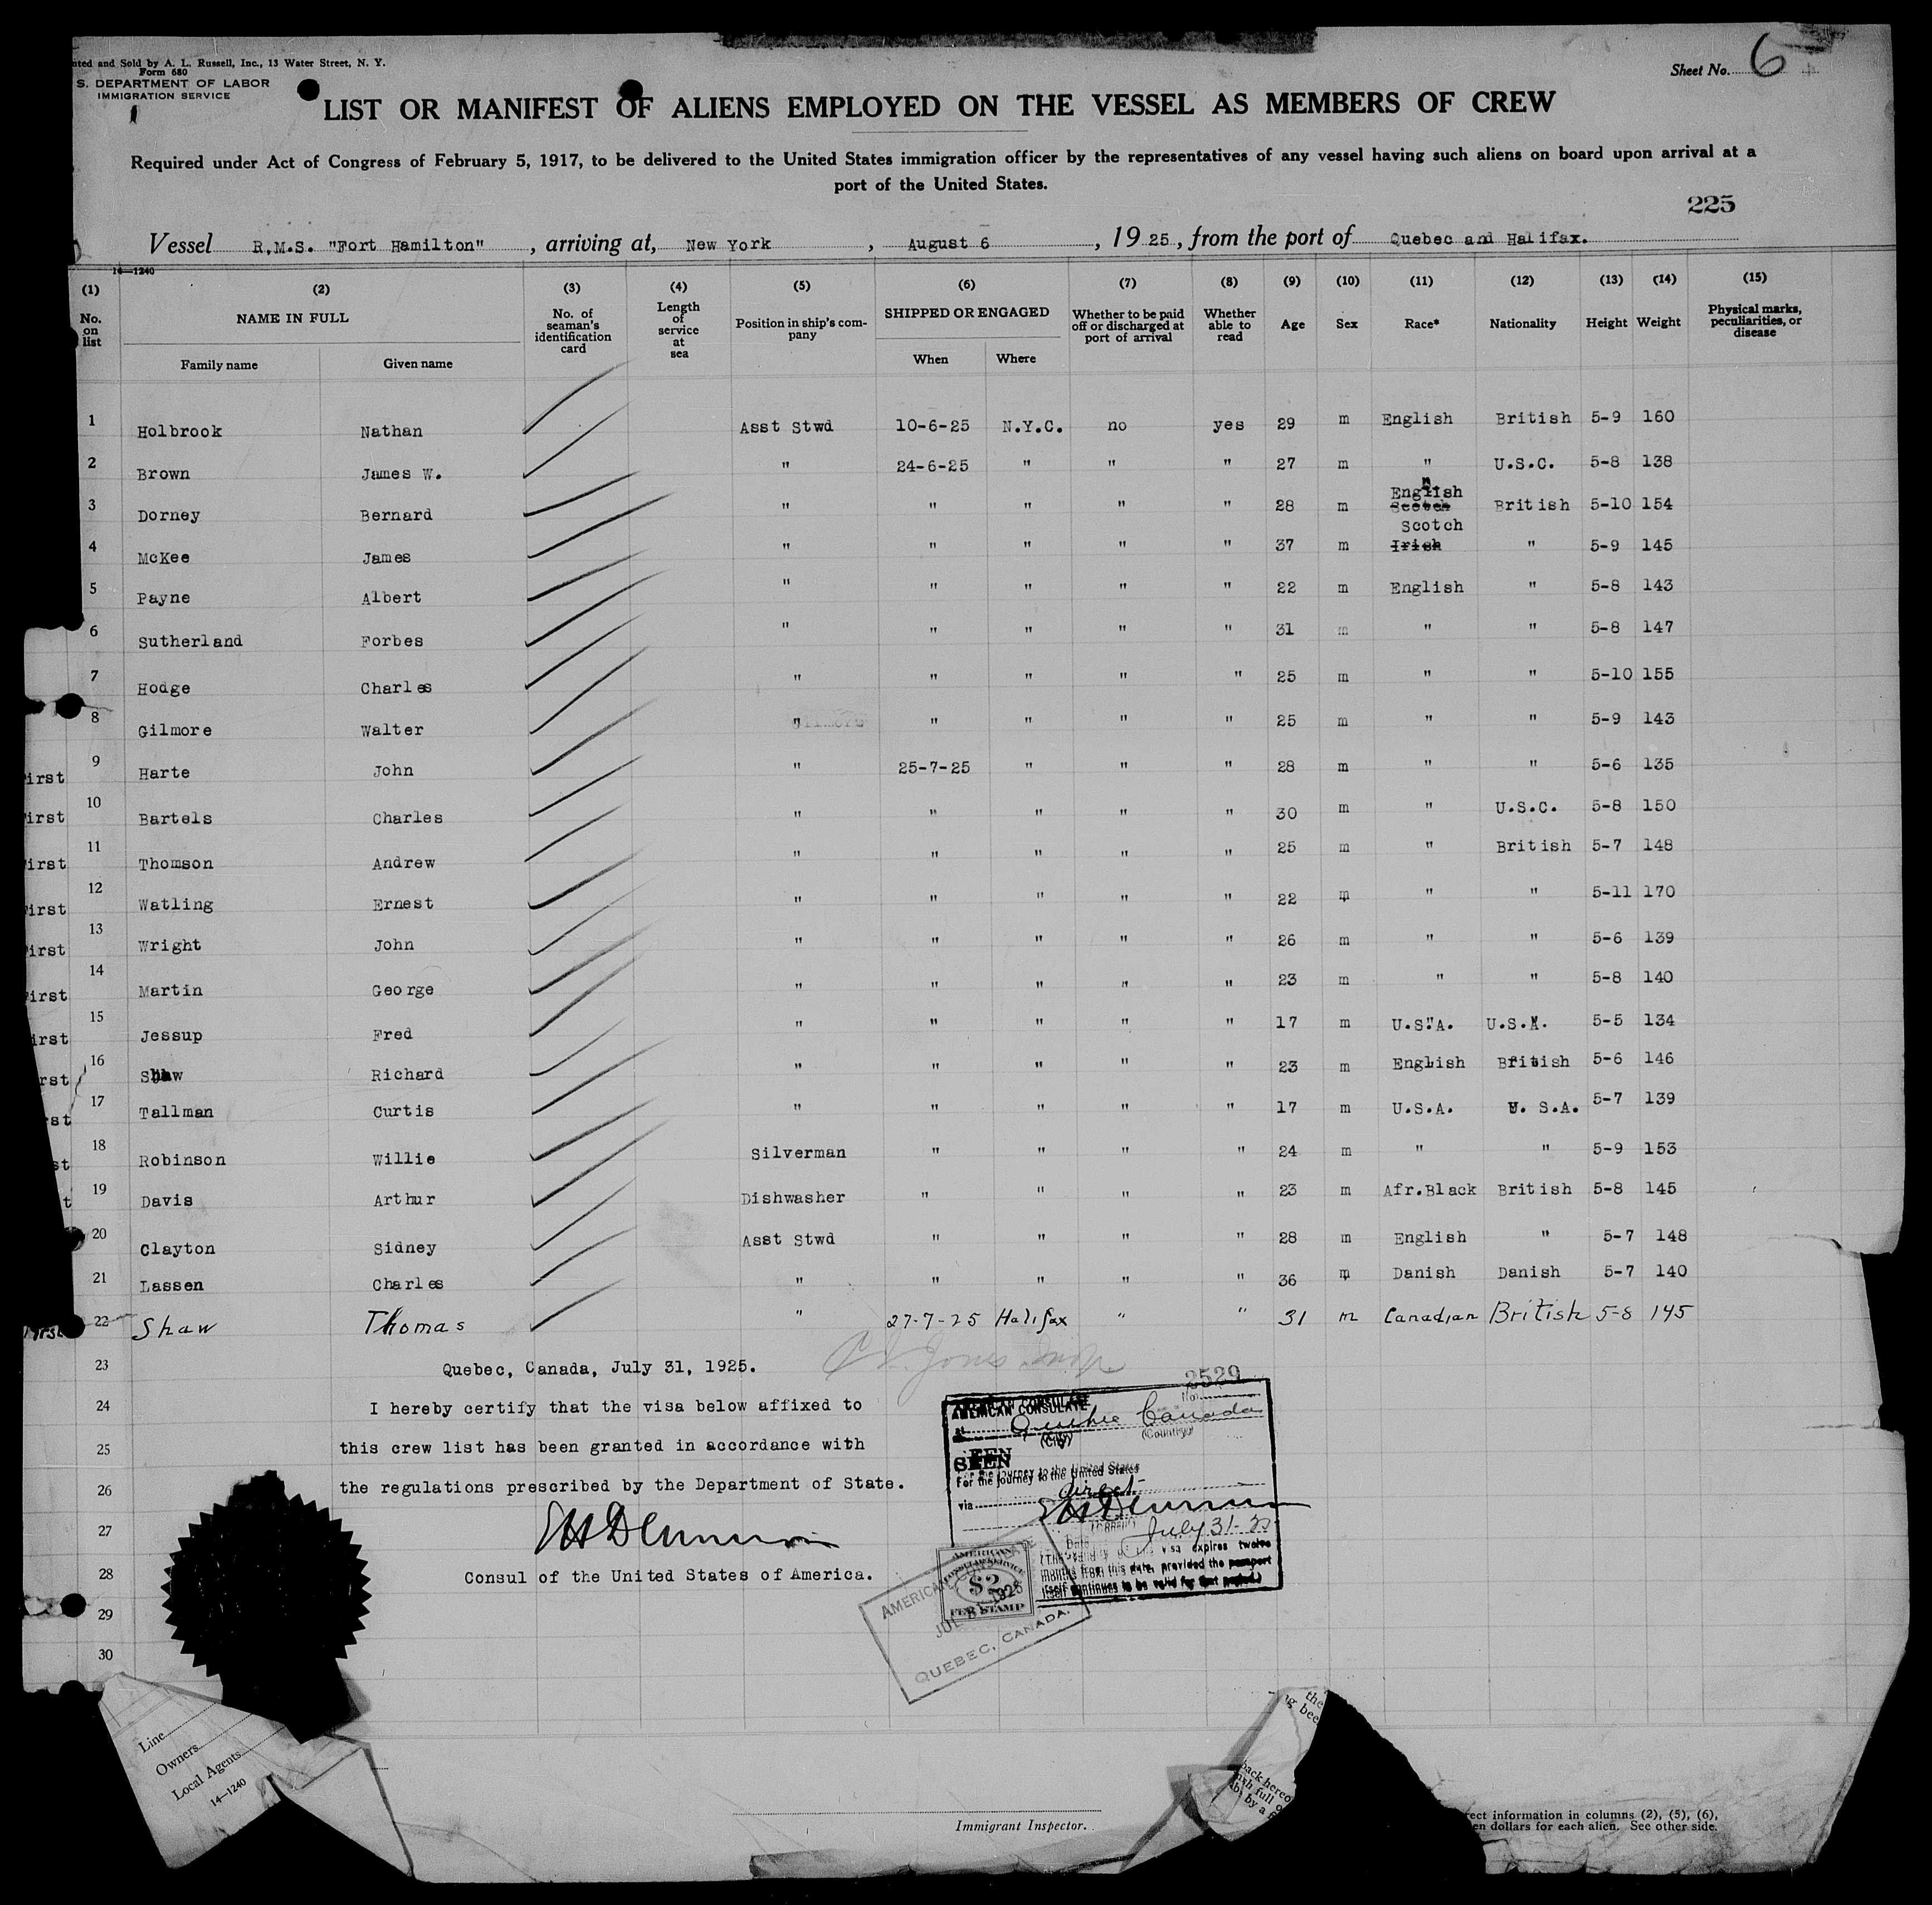 nted and Sold by A. L. Russell, Inc., 13 Water Street, N. Y.
Form 680
S. DEPARTMENT OF LABOR
IMMIGRATION SERVICE
Sheet No. 6
LIST OR MANIFEST OF ALIENS EMPLOYED ON THE VESSEL AS MEMBERS OF CREW
Required under Act of Congress of February 5, 1917, to be delivered to the United States immigration officer by the representatives of any vessel having such aliens on board upon arrival at a
port of the United States.
225
Vessel R.M.S. "Fort Hamilton", arriving at, New York, August 6, 1925, from the port of Quebec and Halifax.
14—1240
(1) (2) (3) (4) (5) (6) (7) (8) (9) (10) (11) (12) (13) (14) (15)
No. on list NAME IN FULL No. of seaman's identification card Length of service at sea Position in ship's company SHIPPED OR ENGAGED Whether to be paid off or discharged at port of arrival Whether able to read Age Sex Race* Nationality Height Weight Physical marks, peculiarities, or disease
Family name Given name When Where
1 Holbrook Nathan Asst Stwd 10-6-25 N.Y.C. no yes 29 m English British 5-9 160
2 Brown James W. " 24-6-25 " " " 27 m " U.S.C. 5-8 138
3 Dorney Bernard " " " " " 28 m English Scotch British 5-10 154
4 McKee James " " " " " 37 m Scotch Irish " 5-9 145
5 Payne Albert " " " " " 22 m English " 5-8 143
6 Sutherland Forbes " " " " " 31 m " " 5-8 147
7 Hodge Charles " " " " " 25 m " " 5-10 155
8 Gilmore Walter " " " " " 25 m " " 5-9 143
irst 9 Harte John " 25-7-25 " " " 28 m " " 5-6 135
irst 10 Bartels Charles " " " " " 30 m " U.S.C. 5-8 150
irst 11 Thomson Andrew " " " " " 25 m " British 5-7 148
First 12 Watling Ernest " " " " " 22 m " " 5-11 170
First 13 Wright John " " " " " 26 m " " 5-6 139
irst 14 Martin George " " " " " 23 m " " 5-8 140
irst 15 Jessup Fred " " " " " 17 m U.S.A. U.S.A. 5-5 134
rst 16 Shaw Richard " " " " " 23 m English British 5-6 146
st 17 Tallman Curtis " " " " " 17 m U.S.A. U. S.A. 5-7 139
st 18 Robinson Willie Silverman " " " " 24 m " " 5-9 153
t 19 Davis Arthur Dishwasher " " " " 23 m Afr.Black British 5-8 145
20 Clayton Sidney Asst Stwd " " " " 28 m English " 5-7 148
21 Lassen Charles " " " " " 36 m Danish Danish 5-7 140
22 Shaw Thomas " 27-7-25 Halifax " " 31 m Canadian British 5-8 145
23 Quebec, Canada, July 31, 1925.
2529
24 I hereby certify that the visa below affixed to
25 this crew list has been granted in accordance with
26 the regulations prescribed by the Department of State.
27
28 Consul of the United States of America.
29
30
AMERICAN CONSULATE
at Quebec Canada
(City) (Country)
SEEN
For the journey to the United States
via direct
Date July 31-25
visa expires twelve
months from this date, provided the passport
itself continues to be valid for that period.)
AMERICAN
CONSULAR SERVICE
$2
FEE STAMP
AMERICAN CONSULATE
JUL 31 1925
QUEBEC, CANADA.
Line
Owners
Local Agents
14—1240
the
ng bee
back hereo
with full
by a
Immigrant Inspector.
rect information in columns (2), (5), (6),
en dollars for each alien. See other side.